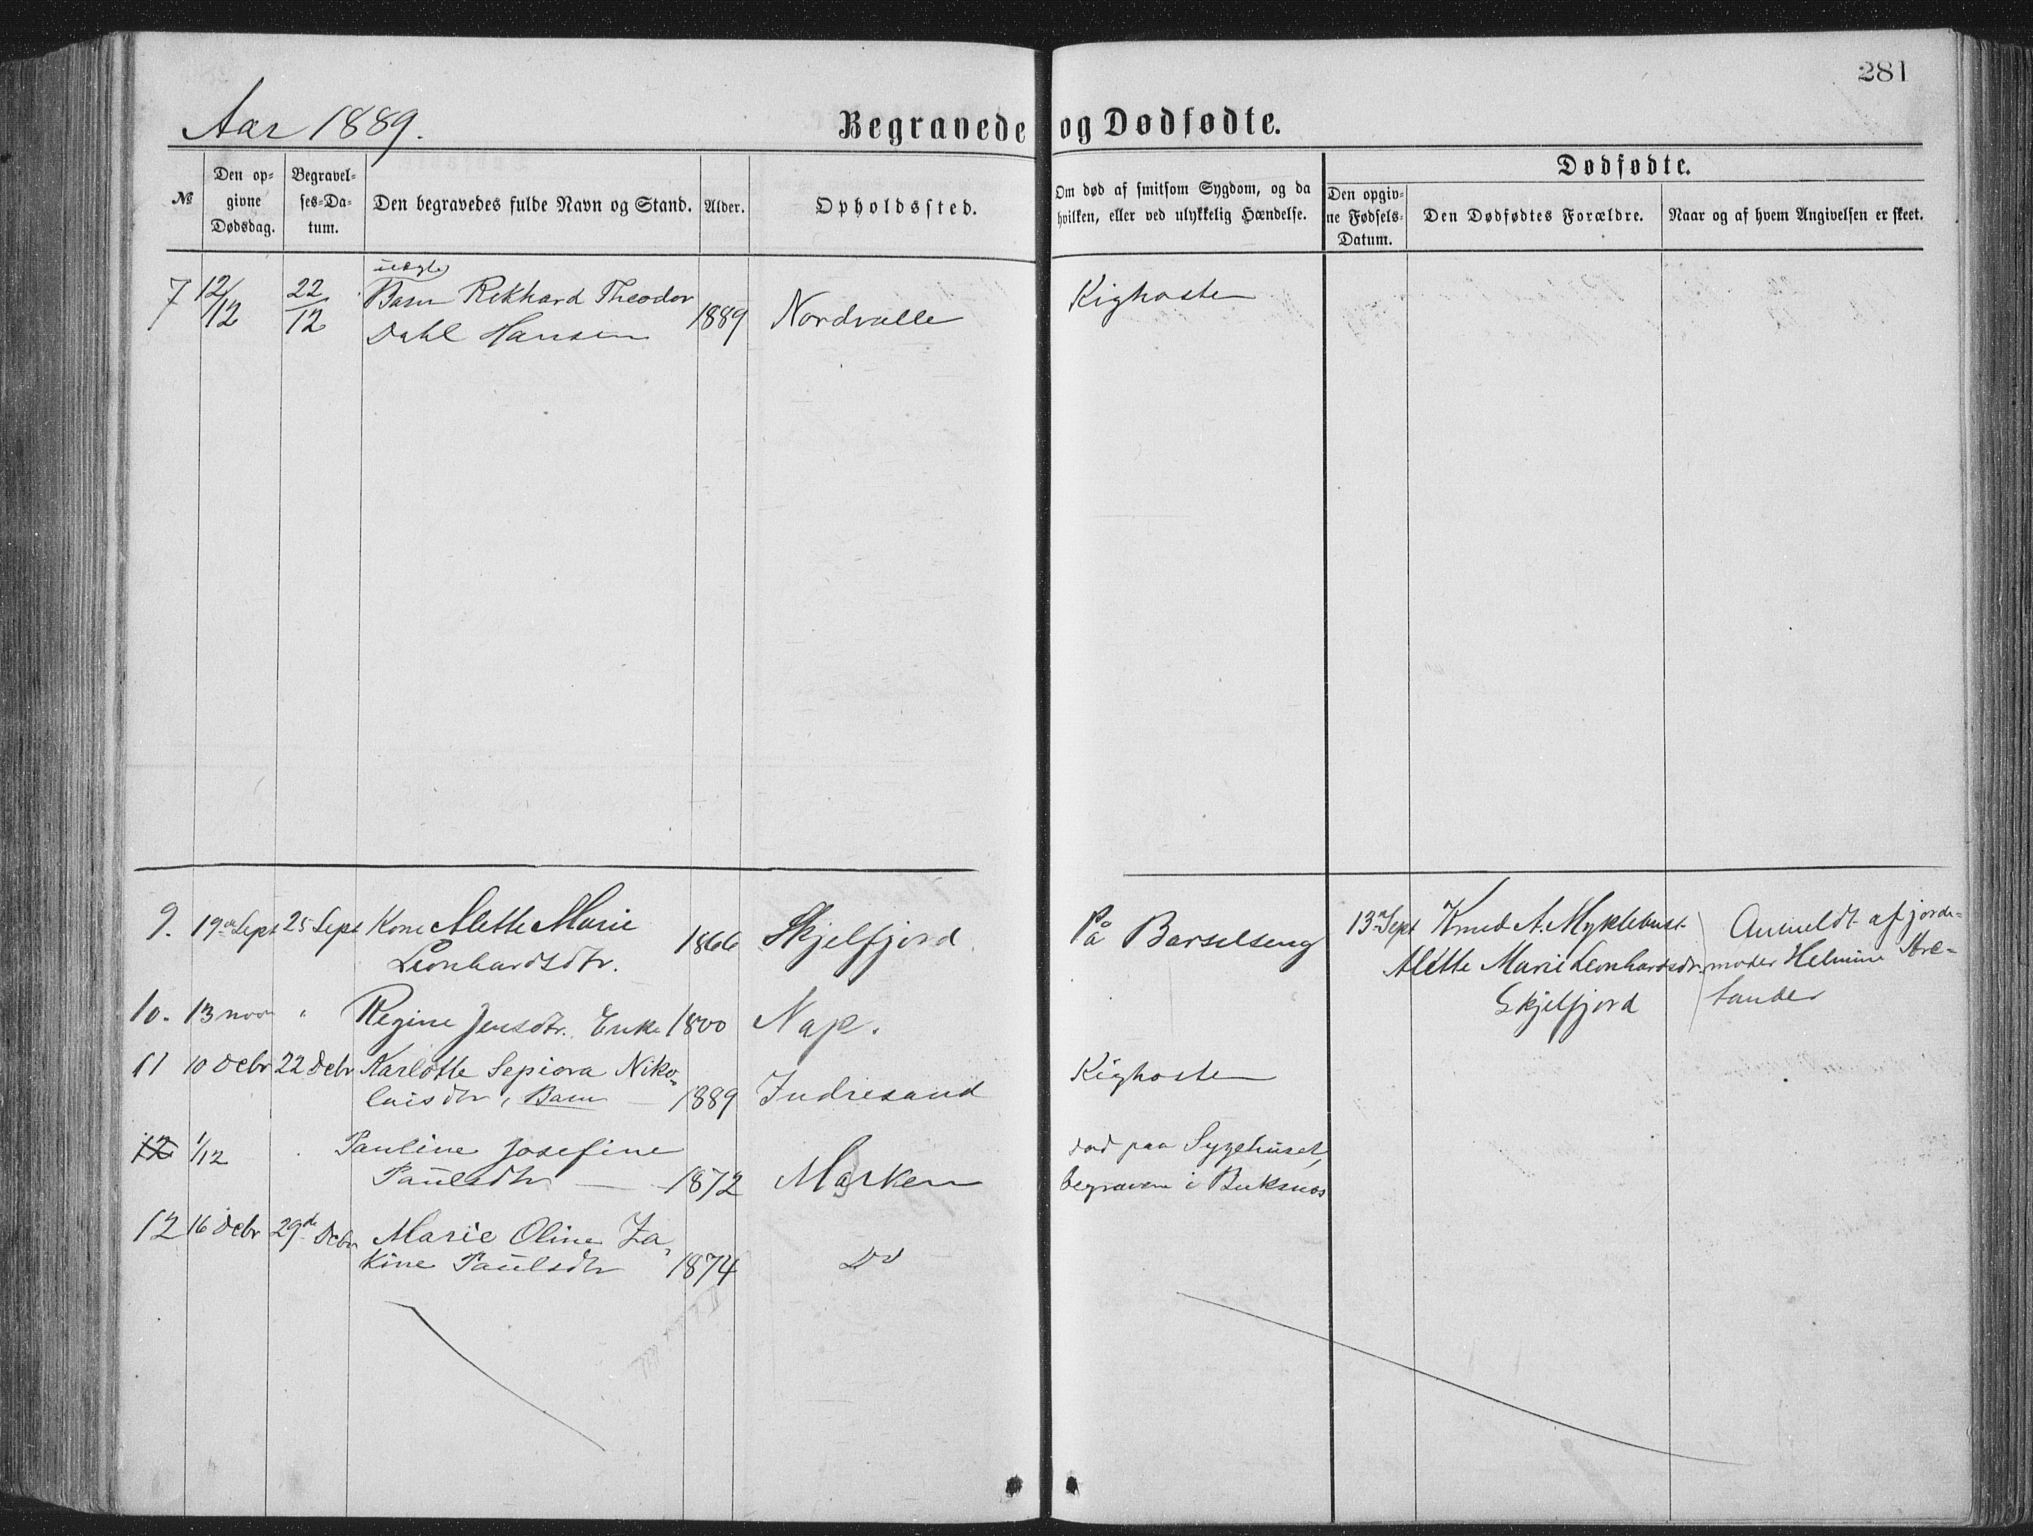 281
Aar 1889.
Begravede og Dødfødte.
№
Den opgivne Dødsdag.
Begravelses-Datum.
Den begravedes fulde Navn og Stand.
Alder.
Opholdssted.
Om død af smitsom Sygdom, og da hvilken, eller ved ulykkelig Hændelse.
Dødfødte.
Den opgivne Fødsels-Datum.
Den Dødfødtes Forældre.
Naar og af hvem Angivelsen er skeet.
uægte
7 12/12 22/12 Barn Rikhard Theodor
Dahl Hansen 1889 Nordvalle Kighoste
9. 19de Sept 25 Sept Kone Alette Marie
Leonhardsdtr. 1866 Skjelfjord På Barselseng 13de Sept Knud A. Myklebust Anmeldt af jorde-
Alette Marie Leonhardsdtr. moder Helmine Stre-
Skjelfjord
10. 13 nov " Regine Jensdtr. Enke 1800 Nap.
11 10 Debr 22 Debr Karlotte Sepiora Niko-
laisdtr, Barn 1889 Indresand Kighoste
12 1/12 Pauline Josefine
Paulsdtr 1872 Marken død paa Sygehuset,
begraven i Buksnes
12 16 Debr 29de Debr Marie Oline Za-
kine Paulsdtr 1874 Do